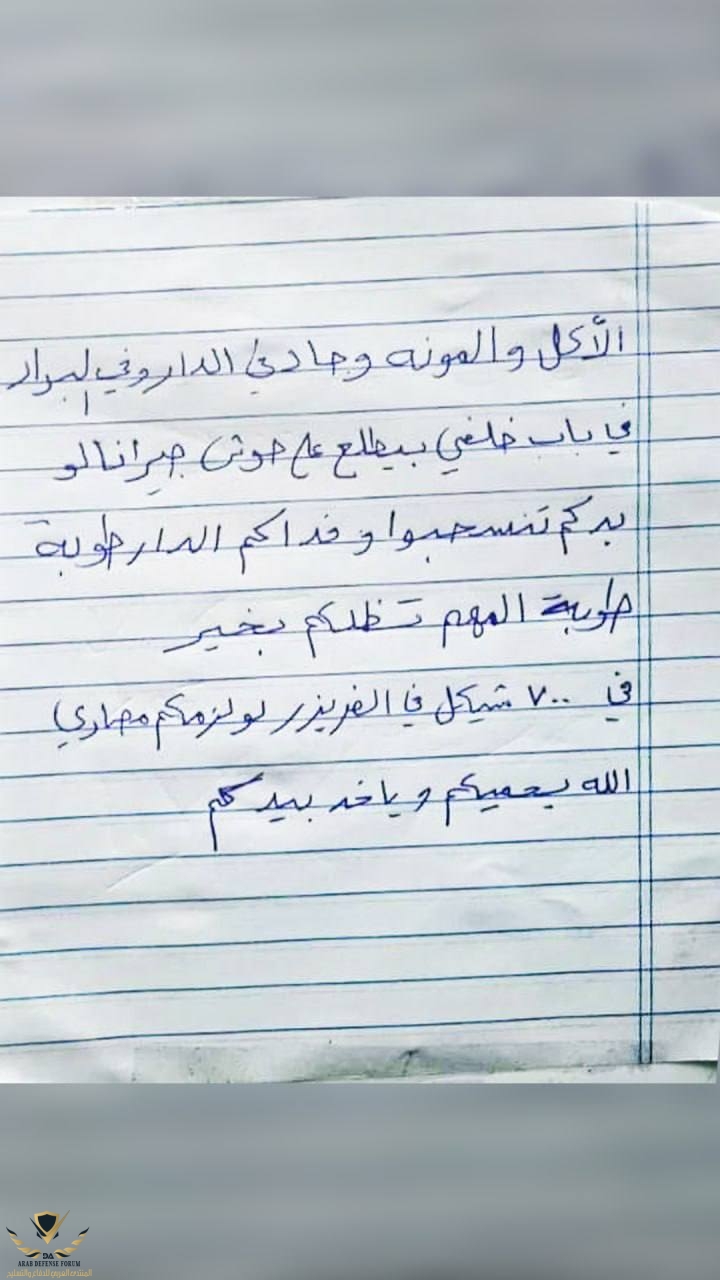 الأكل والمونه وحا في الدار وفي البراد
في باب خلفي بيطلع على حوش جيرانا لو
بدكم تنسحبوا وفداكم الدار طوبة
طوبة المهم تظلكم بخير
في ٧٠٠ شيكل في الفريزر لو لزمكم مصاري
الله يحميكم وياخد بيدكم
DA
ARAB DEFENSE FORUM
المنتدى العربي للدفاع والتسليح